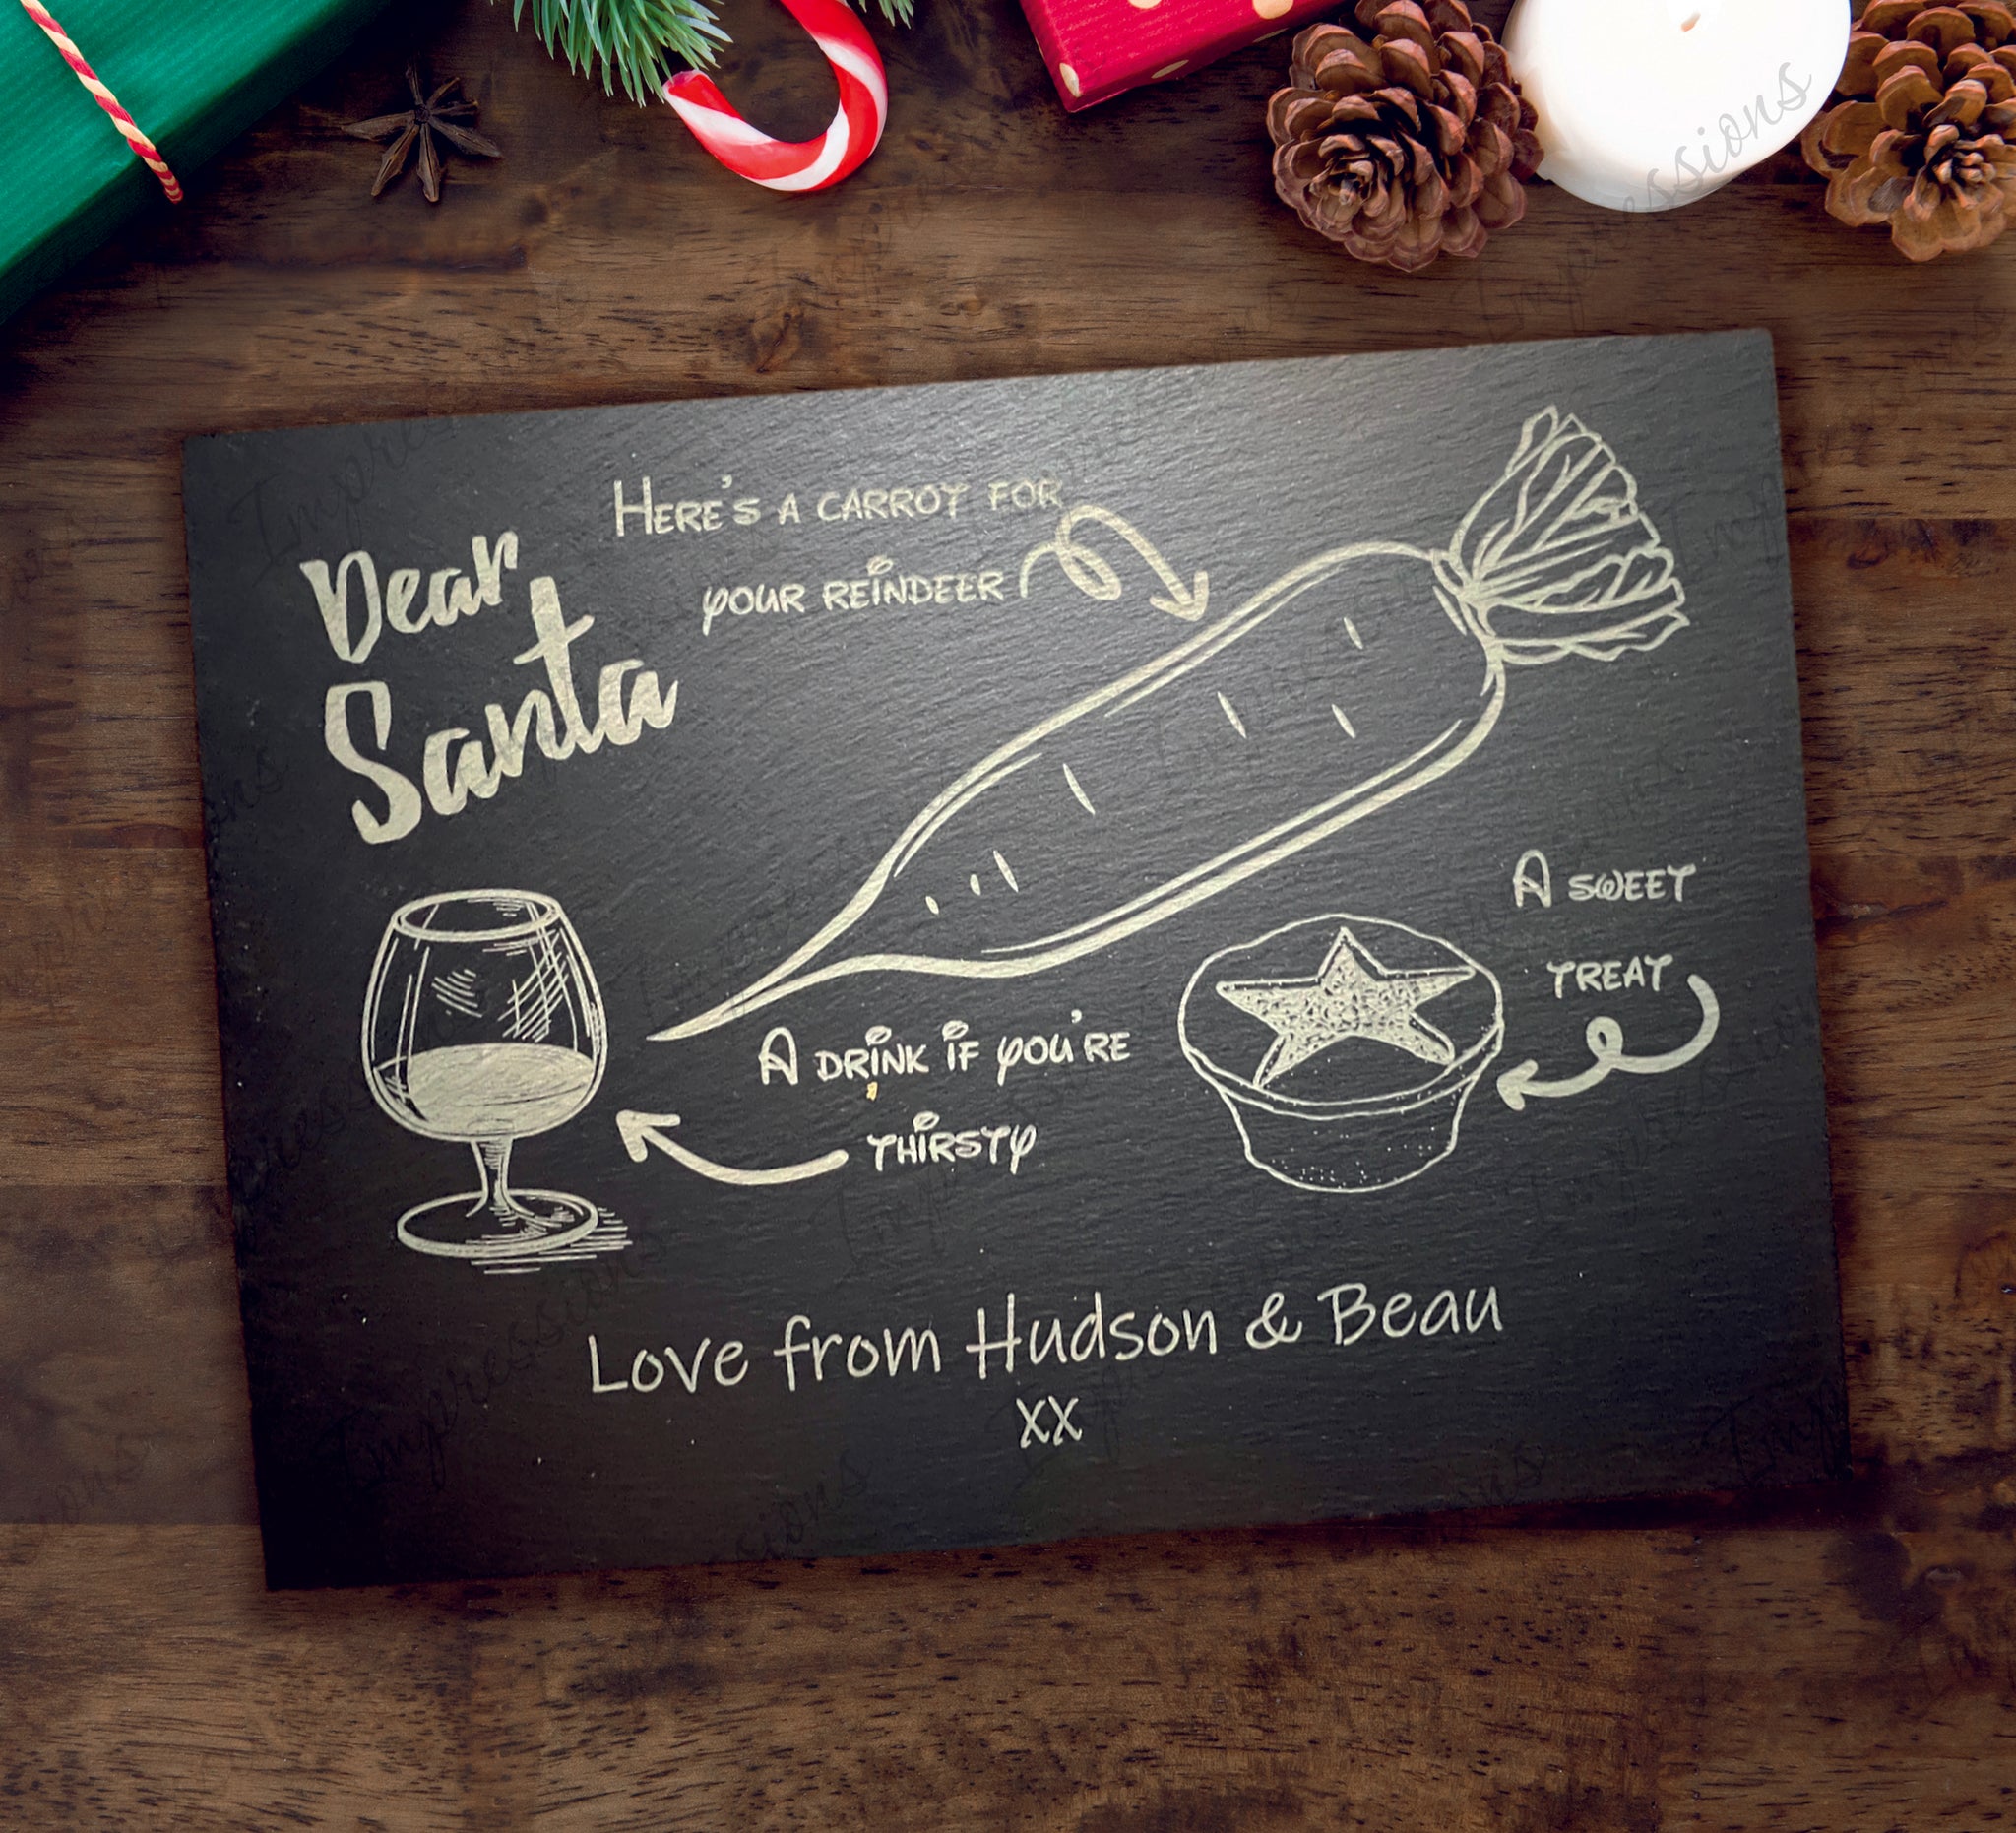 Dear
Santa
Here's a carrot for
your reindeer
A sweet
treat
A drink if you're
thirsty
Love from Hudson & Beau
xx
Impressions